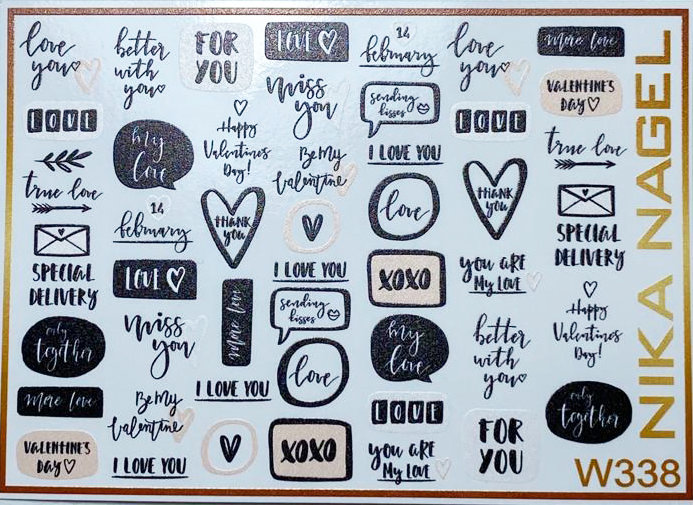 love
you
better
with
you
FOR
YOU
LOVE
14
february
love
you
more love
LOVE
my
love
miss
you
sending
kisses
LOVE
VALENTINE'S
DAY
Happy
Valentine's
Day!
Be My
Valentine
I LOVE YOU
true love
true love
14
february
THANK
YOU
love
THANK
YOU
SPECIAL
DELIVERY
SPECIAL
DELIVERY
LOVE
I LOVE YOU
XOXO
you ARE
My LOVE
only
together
miss
you
more love
sending
kisses
my
love
better
with
you
Happy
Valentine's
Day!
more love
Be My
Valentine
I LOVE YOU
love
LOVE
only
together
VALENTINE'S
DAY
I LOVE YOU
XOXO
you ARE
My LOVE
FOR
YOU
NIKA NAGEL
W338